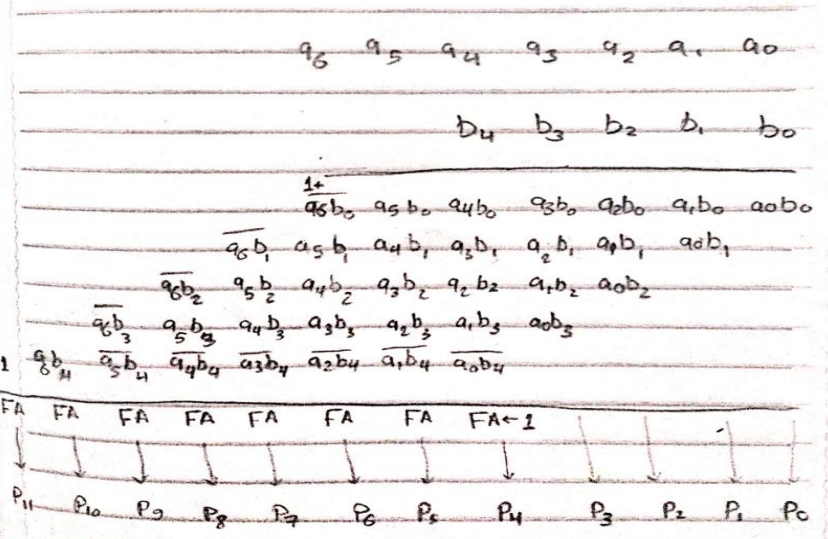 a₆ a₅ a₄ a₃ a₂ a₁ a₀
b₄ b₃ b₂ b₁ b₀
1+
a̅₆̅b̅₀̅ a₅b₀ a₄b₀ a₃b₀ a₂b₀ a₁b₀ a₀b₀
a̅₆̅b̅₁̅ a₅b₁ a₄b₁ a₃b₁ a₂b₁ a₁b₁ a₀b₁
a̅₆̅b̅₂̅ a₅b₂ a₄b₂ a₃b₂ a₂b₂ a₁b₂ a₀b₂
a̅₆̅b̅₃̅ a₅b₃ a₄b₃ a₃b₃ a₂b₃ a₁b₃ a₀b₃
1 a₆b₄ a̅₅̅b̅₄̅ a̅₄̅b̅₄̅ a̅₃̅b̅₄̅ a̅₂̅b̅₄̅ a̅₁̅b̅₄̅ a̅₀̅b̅₄̅
FA FA FA FA FA FA FA FA←1
P₁₁ P₁₀ P₉ P₈ P₇ P₆ P₅ P₄ P₃ P₂ P₁ P₀